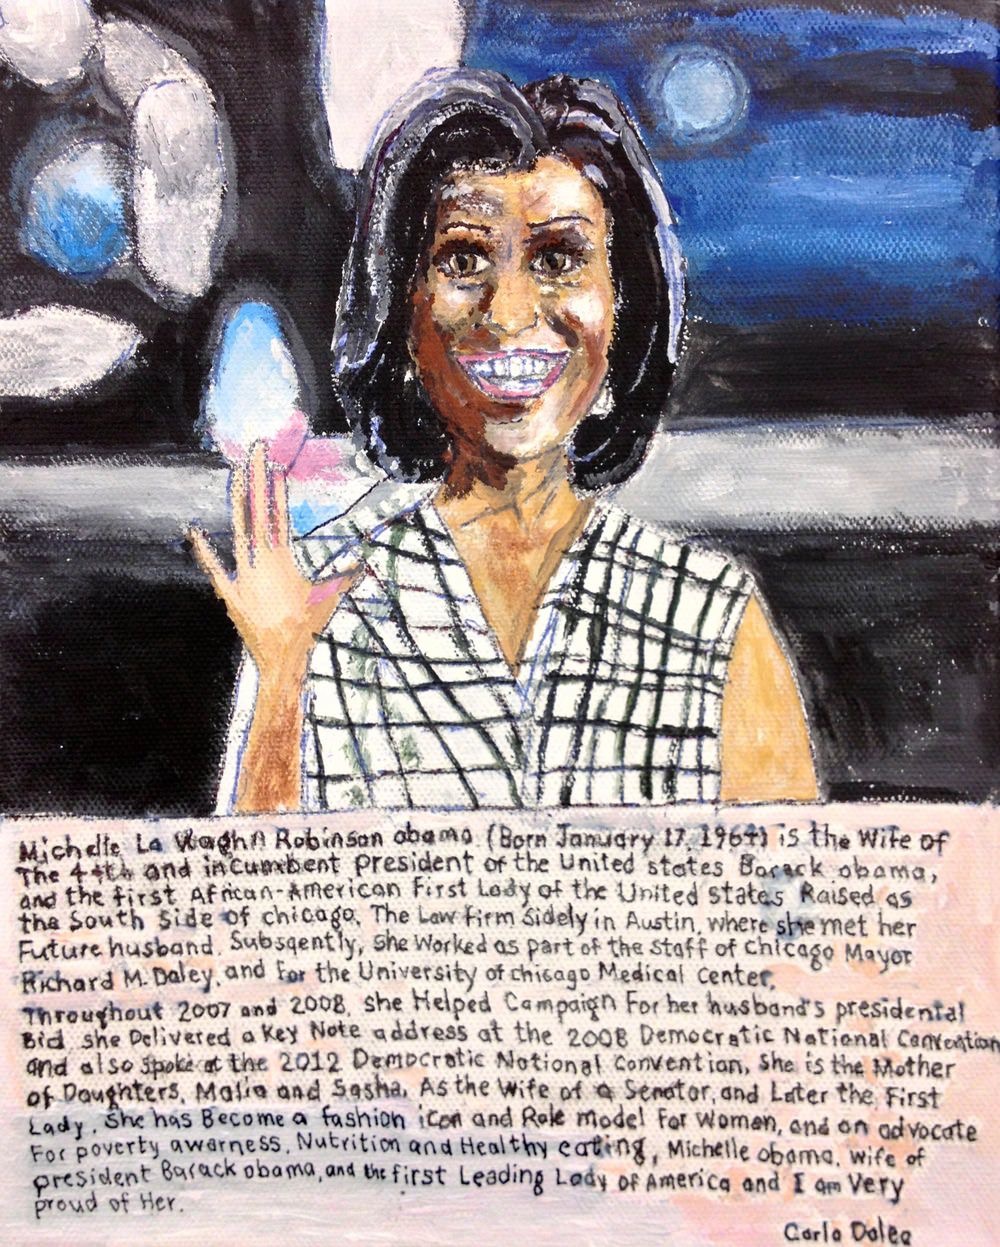 Michelle La Vaghn Robinson obama (Born January 17, 1964) is the Wife of
The 44th and incumbent president of the United states Barack obama,
and the first African-American First Lady of the United states Raised as
the South Side of chicago. The Law Firm Sidely in Austin, where she met her
Future husband. Subsqently, She Worked as part of the staff of Chicago Mayor
Richard M. Daley, and For the University of chicago Medical Center,
Throughout 2007 and 2008, she Helped Campaign For her husband's presidential
Bid she Delivered a Key Note address at the 2008 Democratic National Convention
and also spoke at the 2012 Democratic National Convention, She is the Mother
of Daughters, Malia and Sasha, As the Wife of a Senator, and Later the First
Lady, She has Become a fashion icon and Role Model For Women, and an advocate
For poverty awarness, Nutrition and Healthy eating, Michelle obama, wife of
president Barack obama, and the first Leading Lady of America and I am Very
proud of Her.
Carla Dolea